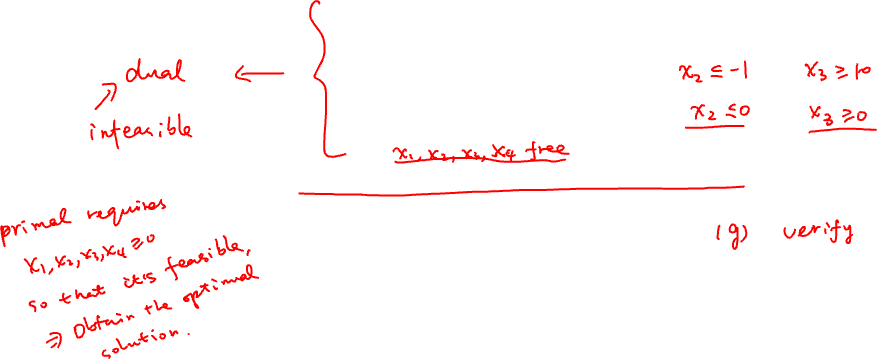 dual ←
infeasible
x₂ ≤ -1 x₃ ≥ 10
x₂ ≤ 0 x₃ ≥ 0
x₁, x₂, x₃, x₄ free
(g) verify
primal requires
x₁, x₂, x₃, x₄ ≥ 0
so that it's feasible,
⇒ Obtain the optimal
solution.